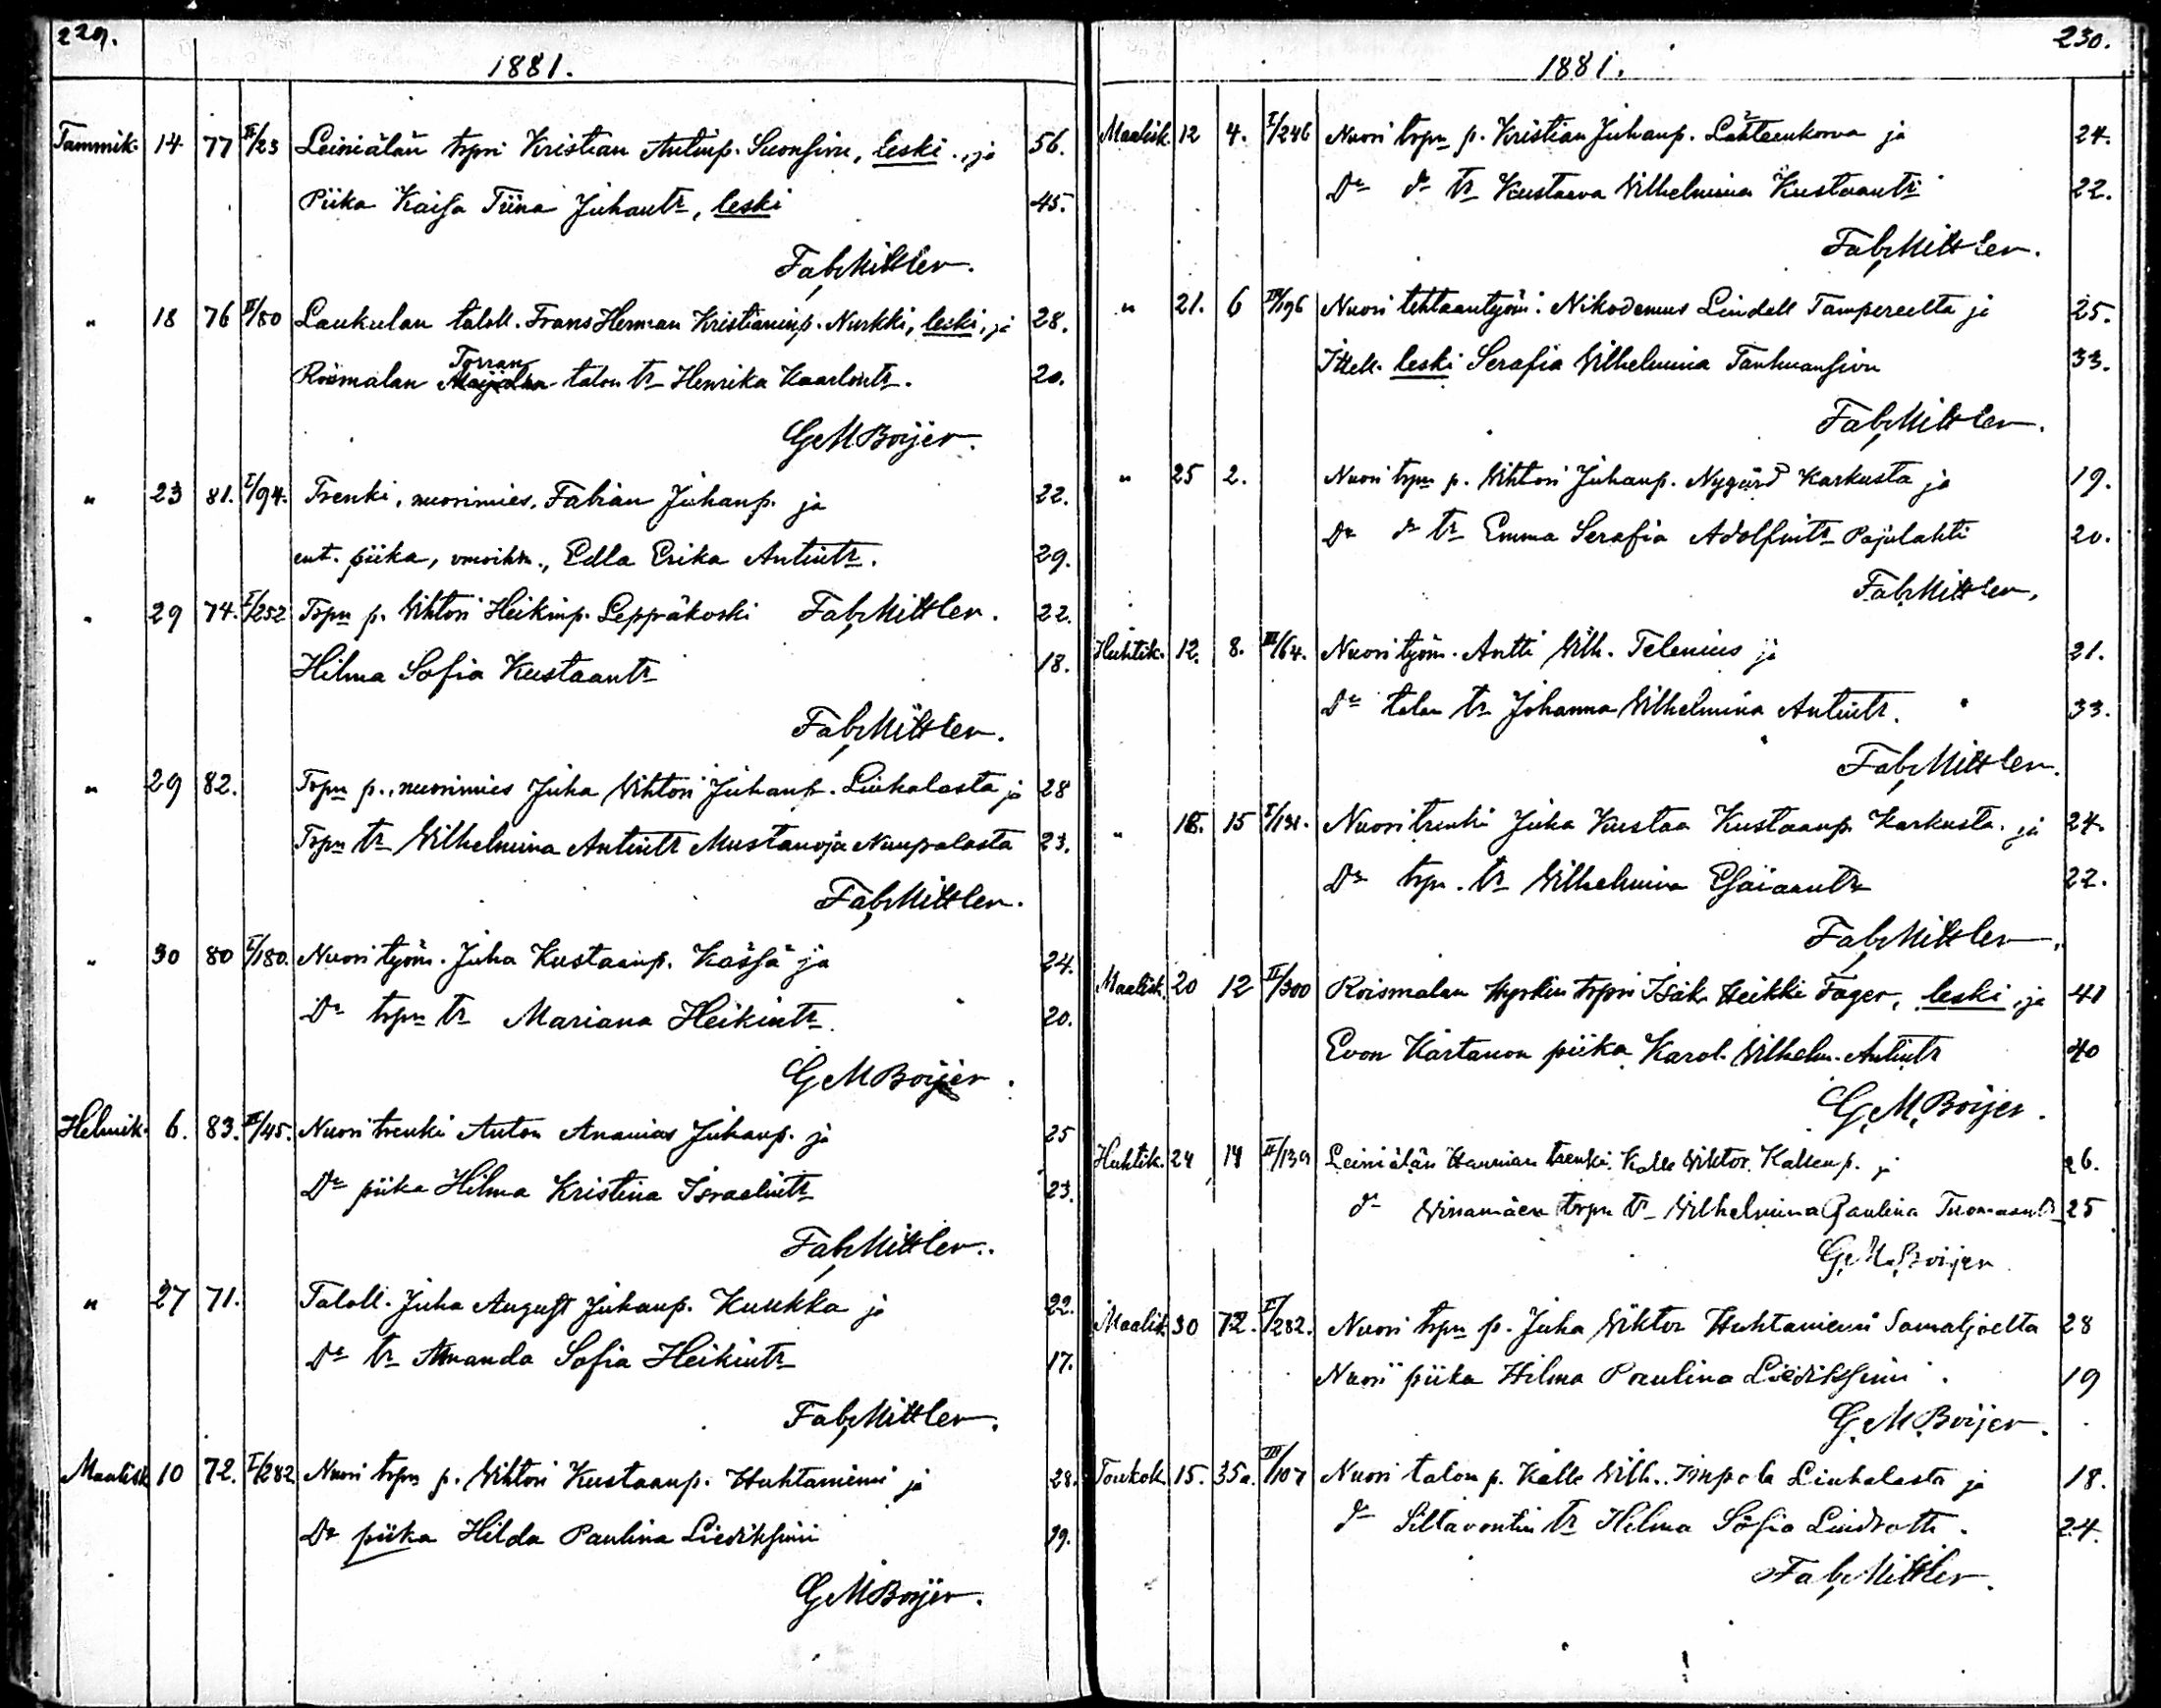 229.
1881.
Tammik. 14 77 II/23 Leiniälän trpri Kristian Antinp. Suonsivu, leski, ja 56.
Piika Kaisa Tiina Juhantr, leski 45.
Fab. Mittler.
" 18 76 II/80 Laukulan taloll. Frans Herman Kristianinp. Nurkki, leski, ja 28.
Roismalan Torran talon tr Henrika Kaarlontr. 20.
G M Boijer.
" 23 81. I/94. Trenki, nuorimies, Fabian Juhanp. ja 22.
ent. piika, Edla Erika Antintr. 29.
" 29 74. I/252 Trpn p. Wihtori Heikinp. Leppäkoski Fab. Mittler. 22.
Hilma Sofia Kustaantr 18.
Fab. Mittler.
" 29 82. Trpn p., nuorimies Juha Wihtori Juhanp. Liuhalasta ja 28
Trpn tr Wilhelmina Antintr Mustanoja Nuupalasta 23.
Fab. Mittler.
" 30 80 I/180. Nuori työm. Juha Kustaanp. Kässä ja 24.
Do trpn tr Mariana Heikintr. 20.
G M Boijer.
Helmik. 6. 83. II/45. Nuori trenki Anton Ananias Juhanp. ja 25
Do piika Hilma Kristina Israelintr 23.
Fab. Mittler.
" 27 71. Taloll. Juha August Juhanp. Kuukka ja 22.
Do tr Amanda Sofia Heikintr 17.
Fab. Mittler.
Maalisk 10 72. I/282 Nuori trpn p. Wihtori Kustaanp. Huhtaniemi ja 28.
Do piika Hilda Paulina Liedikssini 19.
G M Boijer.
230.
1881.
Maalisk. 12 4. I/246 Nuori trpn p. Kristian Juhanp. Lähteenkorva ja 24.
Do do tr Kustaava Wilhelmina Kustaantr 22.
Fab. Mittler.
" 21. 6 II/196 Nuori tehtaantyöm. Nikodemus Lindell Tampereelta ja 25.
Ittell. leski Serafia Wilhelmina Tanhuansivu 33.
Fab. Mittler.
" 25 2. Nuori trpn p. Wihtori Juhanp. Nygård Karkusta ja 19.
Do do tr Emma Serafia Adolfintr Pajulahti 20.
Fab. Mittler.
Huhtik. 12. 8. III/64. Nuori työm. Antti Wilh. Telenius ja 21.
Do talon tr Johanna Wilhelmina Antintr. 33.
Fab. Mittler.
" 18. 15 I/131. Nuori trenki Juha Kustaa Kustaanp. Karkusta ja 24.
Do trpn. tr Wilhelmina Esaiaantr 22.
Fab. Mittler.
Maalisk. 20 12 II/300 Roismalan Hyrkin trpri Isak Heikki Fager, leski, ja 41
Evon Kartanon piika Karol. Wilhelm. Antintr 40
G. M. Boijer.
Huhtik. 24 14 II/139 Leiniälän Hannian trenki Kalle Wiktor Kallenp. ja 26.
do Wirramäen trpn tr Wilhelmina Paulina Tuomaantr 25
G. M. Boijer
Maalisk. 30 72. I/282. Nuori trpn p. Juha Wiktor Huhtaniemi Samaljoelta 28
Nuori piika Hilma Paulina Liedikssini 19
G. M. Boijer.
Toukok. 15. 35a. III/107 Nuori talon p. Kalle Wilh. Impola Liuhalasta ja 18.
do Siltavoutin tr Hilma Sofia Lindroth. 24.
Fab. Mittler.